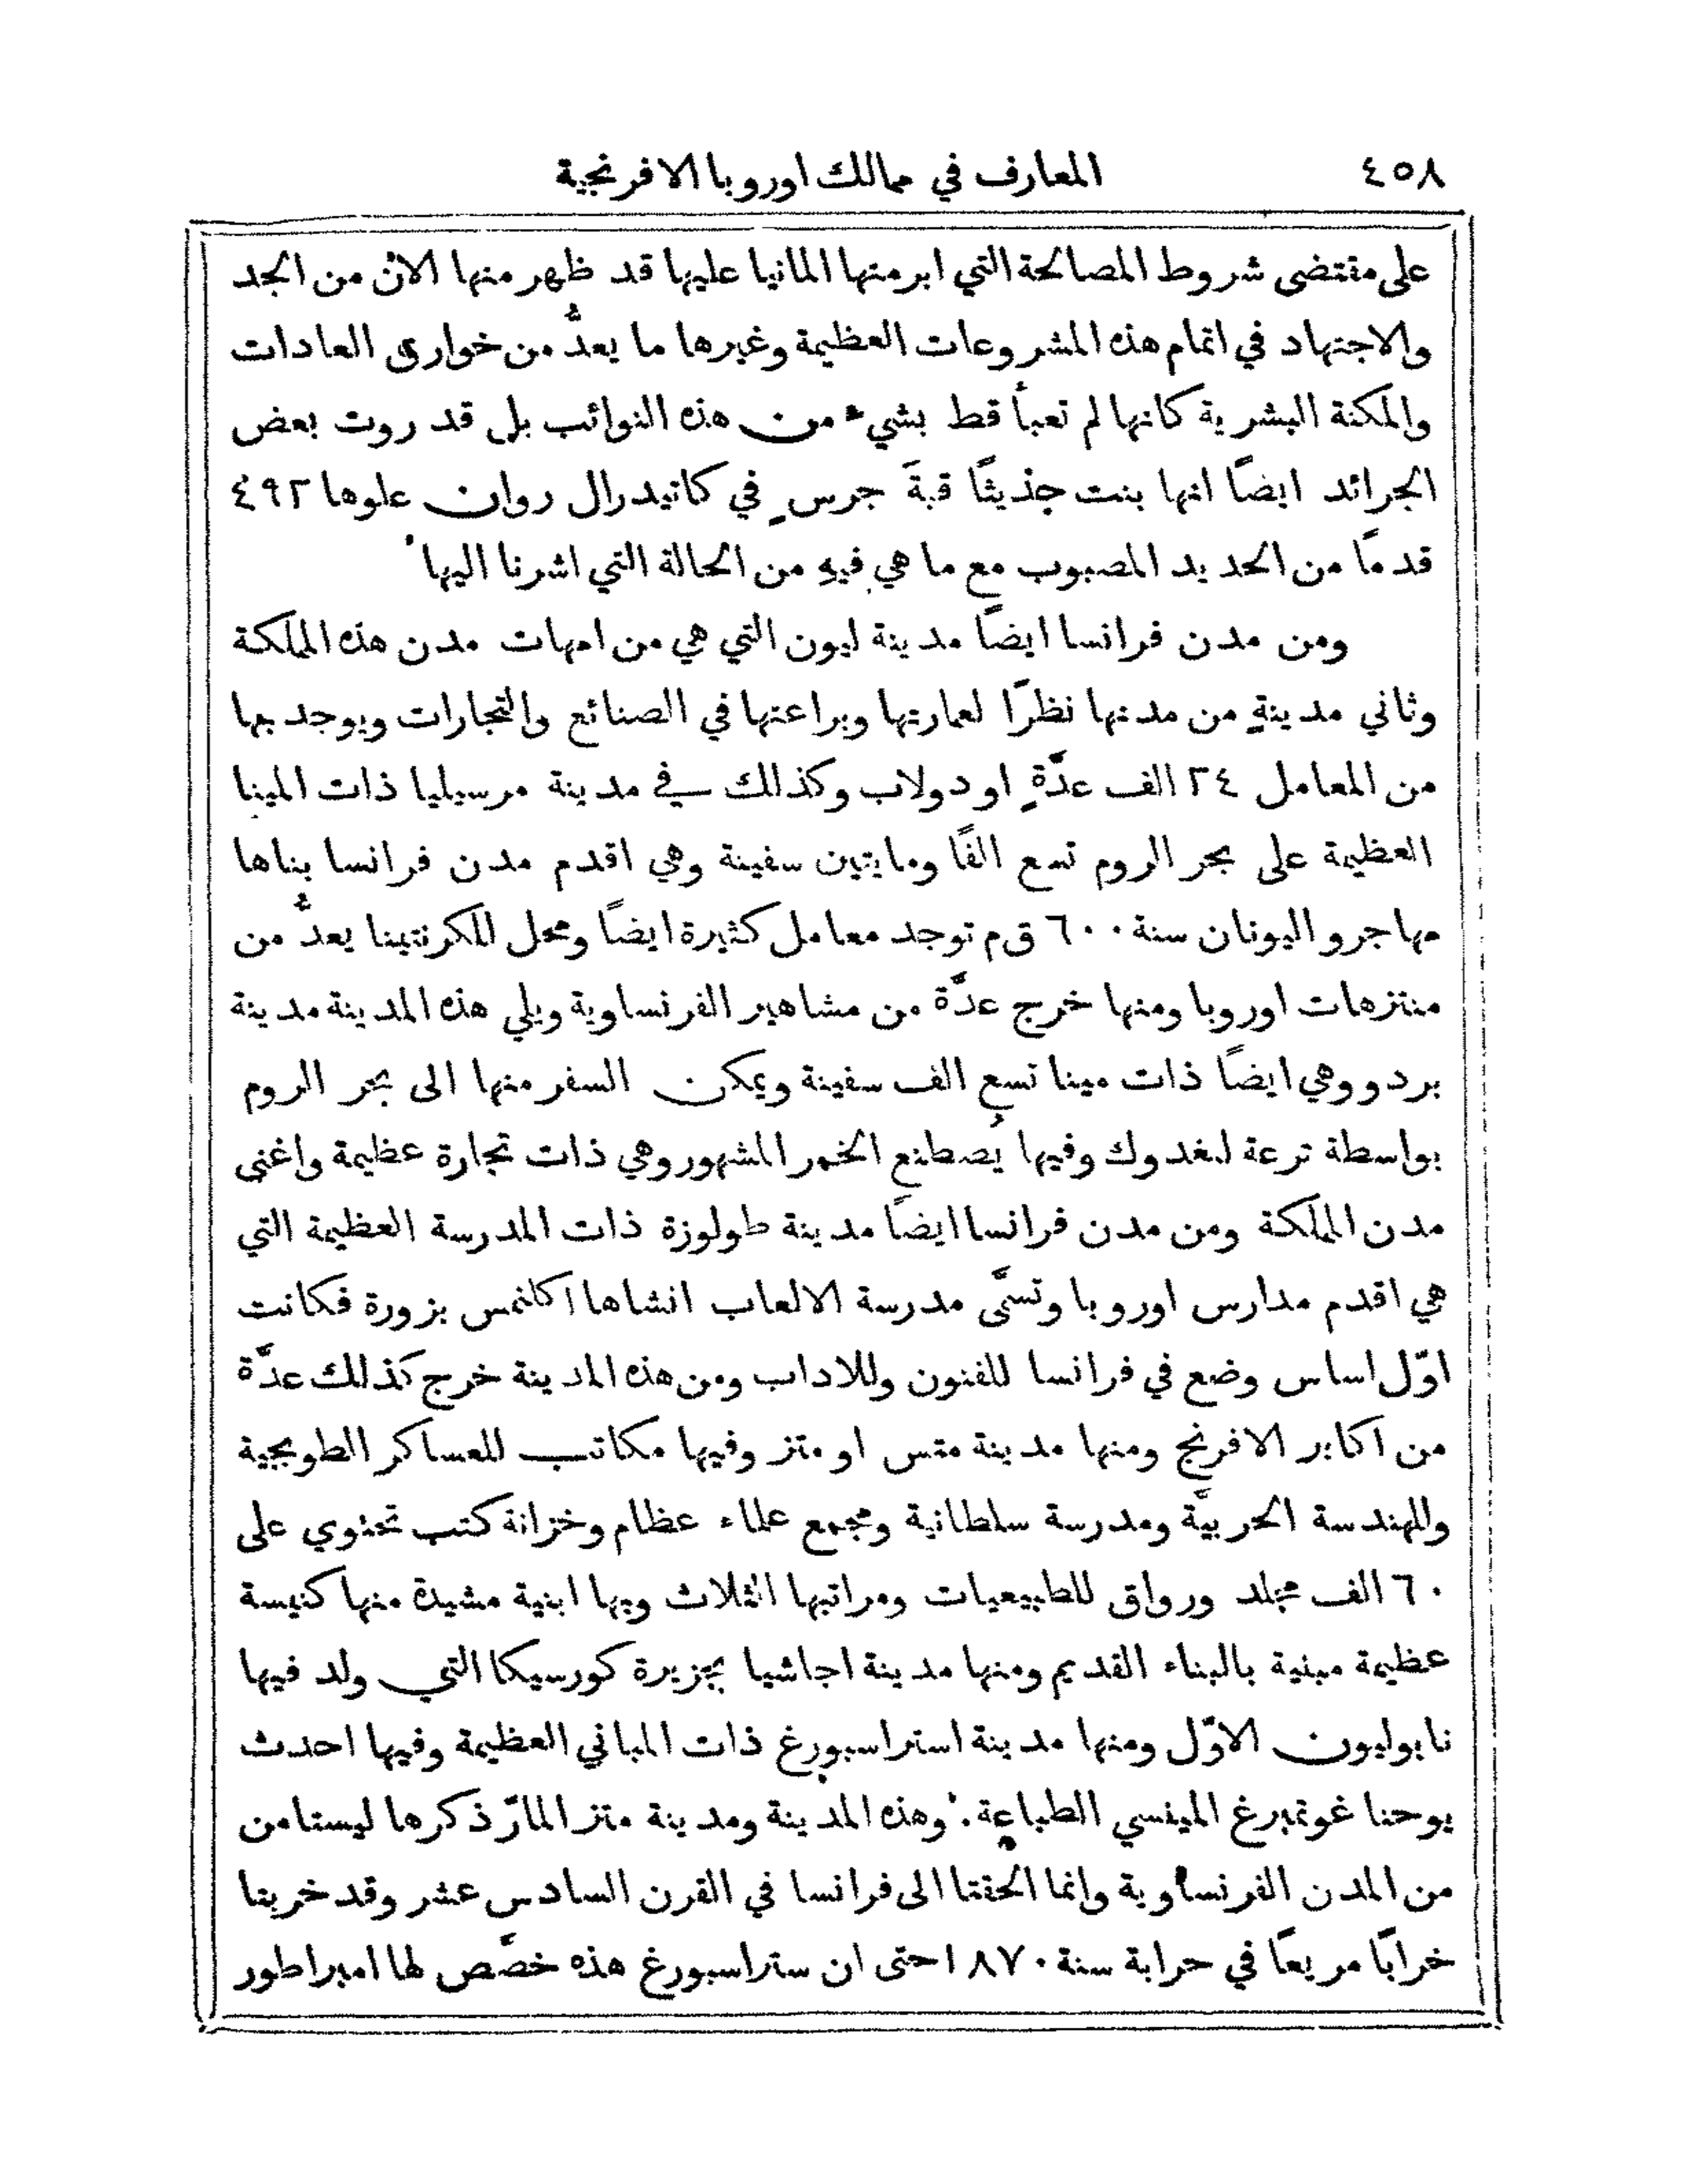 ٤٥٨ المعارف في ممالك اوروبا الافرنجية
على مقتضى شروط المصالحة التي ابرمتها المانيا عليها قد ظهر منها الآن من الجد
والاجتهاد في اتمام هذه المشروعات العظيمة وغيرها ما يعدُّ من خوارق العادات
والمكنة البشرية كانها لم تعبأ قط بشيء من هذه النوائب بل قد روت بعض
الجرائد ايضًا انها بنت حديثًا قبةَ جرسٍ في كاتيدرال روان علوها ٤٩٢
قدمًا من الحديد المصبوب مع ما هي فيهِ من الحالة التي اشرنا اليها
ومن مدن فرانسا ايضًا مدينة ليون التي هي من امهات مدن هذه المملكة
وثاني مدينةٍ من مدنها نظرًا لعمارتها وبراعتها في الصنائع والتجارات ويوجد بها
من المعامل ٢٤ الف عدَّةٍ او دولاب وكذلك في مدينة مرسيليا ذات المينا
العظيمة على بحر الروم تسع الفًا ومايتين سفينة وهي اقدم مدن فرانسا بناها
مهاجرو اليونان سنة ٦٠٠ ق م توجد معامل كثيرة ايضًا ومحل للكرنتيمنا يعدُّ من
منتزهات اوروبا ومنها خرج عدَّة من مشاهير الفرنساوية ويلي هذه المدينة مدينة
بردو وهي ايضًا ذات مينا تسع الف سفينة ويمكن السفر منها الى بحر الروم
بواسطة ترعة لنغدوك وفيها يُصطنع الخمر المشهور وهي ذات تجارة عظيمة واغنى
مدن المملكة ومن مدن فرانسا ايضًا مدينة طولوزة ذات المدرسة العظيمة التي
هي اقدم مدارس اوروبا وتسمَّى مدرسة الالعاب انشاها اكلنمس بزورة فكانت
اوّل اساس وضع في فرانسا للفنون وللاداب ومن هذه المدينة خرج كذلك عدَّة
من اكابر الافرنج ومنها مدينة متس او متز وفيها مكاتب للعساكر الطوبجية
والهندسة الحربيَّة ومدرسة سلطانية ومجمع علماء عظام وخزانة كتب تحتوي على
٦٠ الف مجلد ورواق للطبيعيات ومراتبها الثلاث وبها ابنية مشيدة منها كنيسة
عظيمة مبنية بالبناء القديم ومنها مدينة اجاشيا بجزيرة كورسيكا التي ولد فيها
نابوليون الاوّل ومنها مدينة استراسبورغ ذات المباني العظيمة وفيها احدث
يوحنا غوتمبرغ المينسي الطباعة. وهذه المدينة ومدينة متز المارّ ذكرها ليستا من
من المدن الفرنساوية وانما الحقتا الى فرانسا في القرن السادس عشر وقد خربتا
خرابًا مريعًا في حرابة سنة ١٨٧٠ حتى ان ستراسبورغ هذه خصَّص لها امبراطور